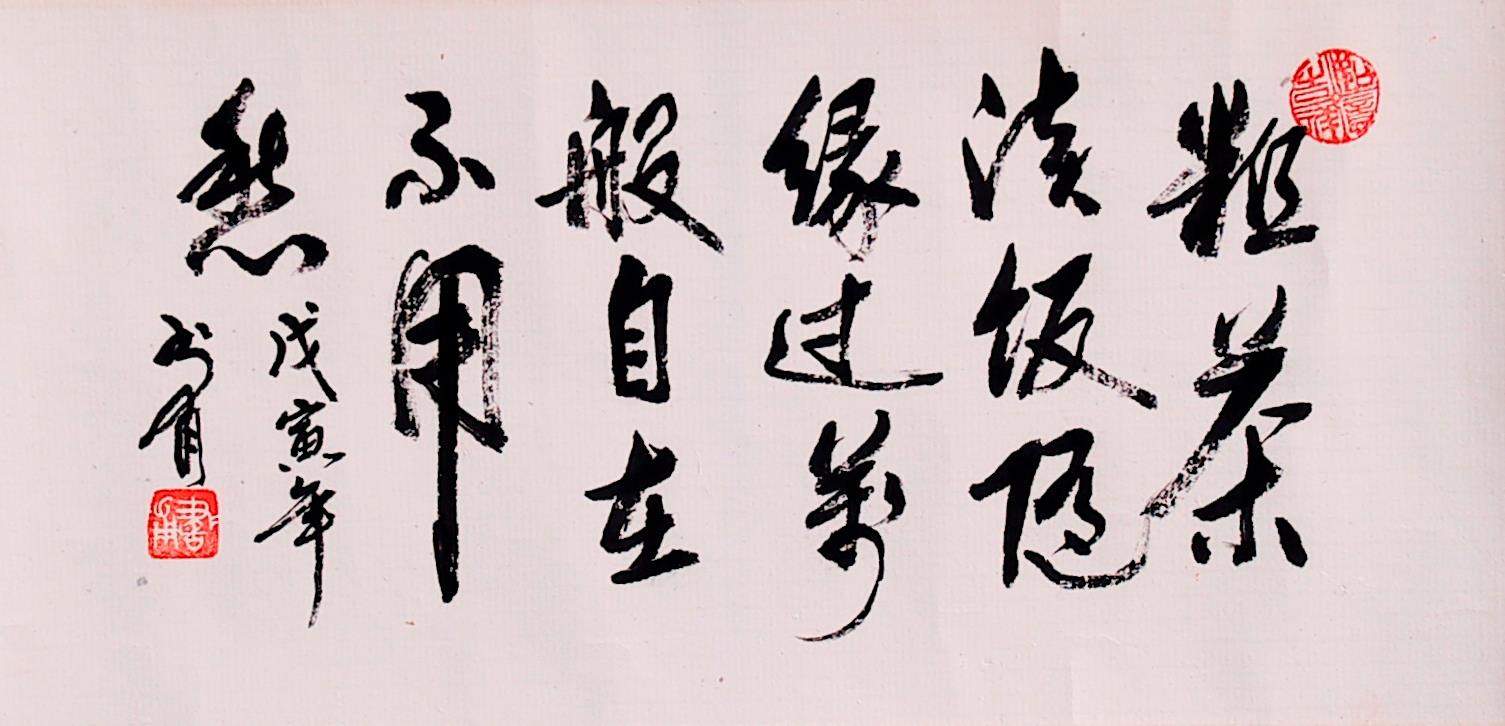 粗茶
淡饭随
缘过萬
般自在
不用
愁
戊寅年